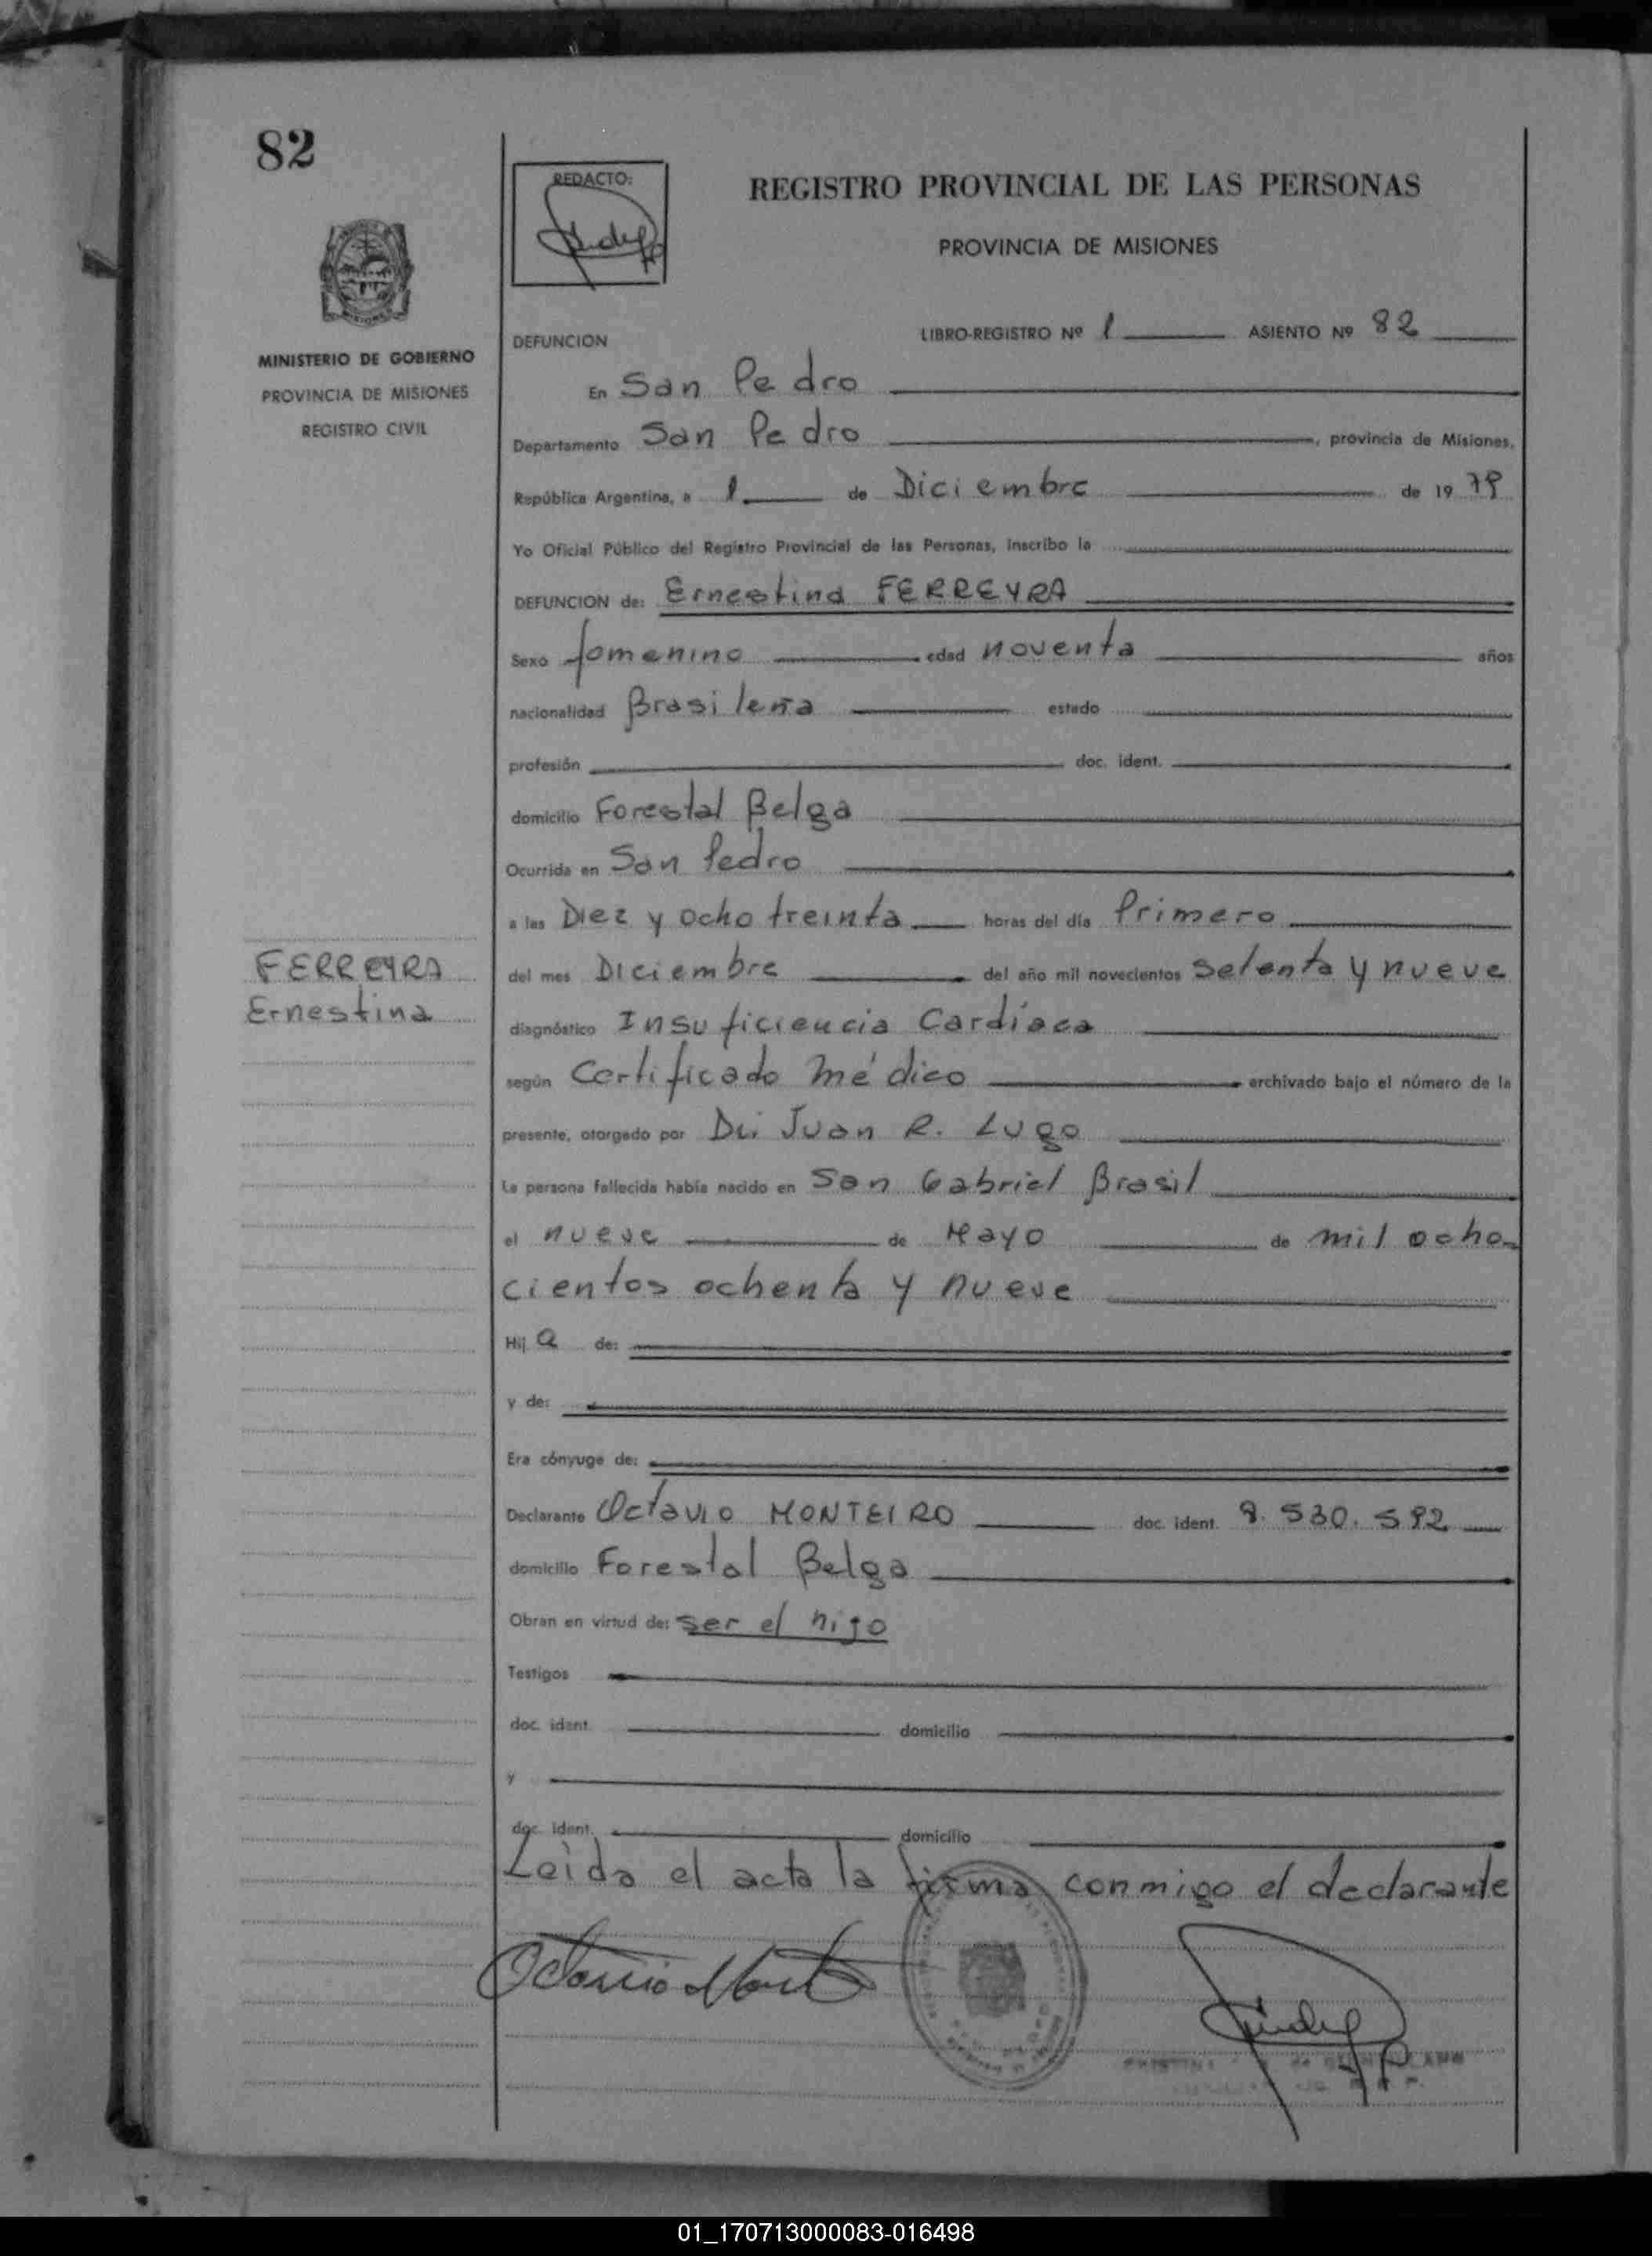 82
REDACTO:
REGISTRO PROVINCIAL DE LAS PERSONAS
PROVINCIA DE MISIONES
MINISTERIO DE GOBIERNO
PROVINCIA DE MISIONES
REGISTRO CIVIL
DEFUNCION
LIBRO-REGISTRO Nº 1 ASIENTO Nº 82
En San Pedro
Departamento San Pedro, provincia de Misiones,
República Argentina, a 1 de Diciembre de 1979
Yo Oficial Público del Registro Provincial de las Personas, inscribo la
DEFUNCION de: Ernestina FERREYRA
Sexo femenino edad noventa años
nacionalidad Brasileña estado
profesión doc. ident.
domicilio Forestal Belga
Ocurrida en San Pedro
a las Diez y ocho treinta horas del día Primero
FERREYRA
Ernestina
del mes Diciembre del año mil novecientos setenta y nueve
diagnóstico Insuficiencia Cardíaca
según Certificado Médico archivado bajo el número de la
presente, otorgado por Dr. Juan R. Lugo
La persona fallecida había nacido en San Gabriel Brasil
el nueve de Mayo de mil ocho
cientos ochenta y nueve
Hij a de:
y de:
Era cónyuge de:
Declarante Octavio MONTEIRO doc. ident. 8.530.592
domicilio Forestal Belga
Obran en virtud de: ser el hijo
Testigos
doc. ident. domicilio
y
doc. ident. domicilio
Leída el acta la firma conmigo el declarante
Octavio
01_170713000083-016498